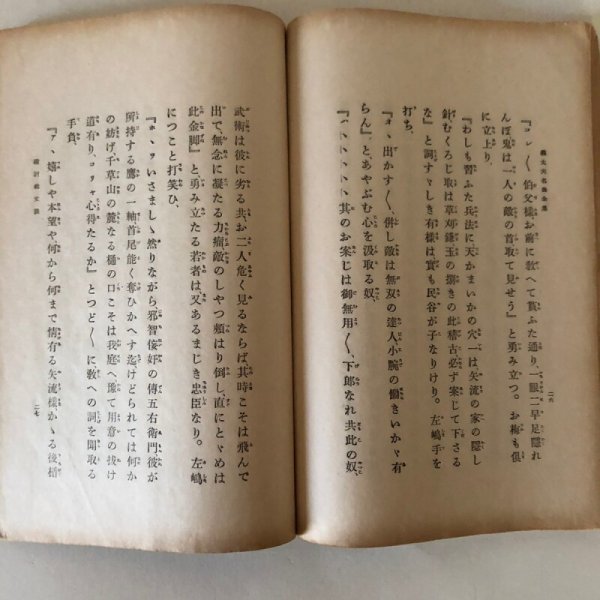 義太夫名曲全集
『コレ〱伯父様お前に教へて貰ふた通り、一眼二早足隠れ
んぼ鬼は一人の敵の首取て見せう』と勇み立つ。お梅も倶
に立上り、
『わしも習ふた兵法に天かまいかの穴一は矢流の家の隠し
針むくろじ取は草苅鎌玉の捌きの此稽古必ず案じて下さる
な』と詞すゞしき有様は實も民谷が子なりけり。左嶋手を
打ち、
『オヽ出かす〱、併し敵は無双の達人小腕の働きいかゞ有
らん』と、あやぶむ心を汲取る奴、
『ハヽヽヽヽヽ其のお案じは御無用〱、下郎なれ共此の奴、
二六
武術は彼に劣る共お二人危く見るならば其時こそは飛んで
出で、無念に凝たる力瘤敵のしやつ頬はり倒し、直にとゞめは
此金脚』と勇み立たる若者は又あるまじき忠臣なり。左嶋
につこと打笑ひ、
『ホヽヲいさましゝ然りながら邪智佞奸の傳五右衛門彼が
所持する鷹の一軸首尾能く奪ひかへす迄けどられては何か
の妨げ千草山の麓なる樋の口こそは我庭へ陰て用意の抜け
道有り、コリャ心得たるか』とつど〱に教への詞を聞取る
手負、
『アヽ嬉しや本望や何から何まで情有る矢流様かゝる後楯
二七